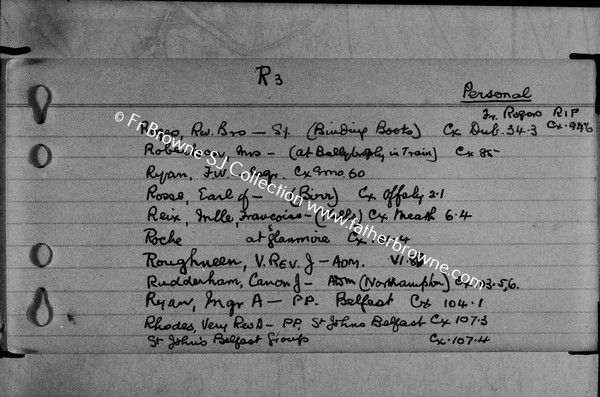 R3
Personal
Fr. Rogers RIP
Cx. 94/6
Rev. Bro — S.J. (Binding Books) Cx Dub. 34.3
Mrs — (at Ballybrophy in Train) Cx 85-
Ryan, F.W. Cx 9mo, 60
Rosse, Earl of — (Birr) Cx Offaly 2.1
Reix, Mlle, Francoise — Cx Meath 6.4
Roche at Glanmire Cx
Roughneen, V. Rev. J — Adm. VI.
Rudderham, Canon J — Adm (Northampton) Cx 103.5,6.
Ryan, Mgr A — P.P. Belfast Cx 104.1
Rhodes, Very Rev D — PP, St Johns Belfast Cx 107.3
St John's Belfast Group Cx. 107.4
© Fr Browne S J Collection www.fatherbrowne.com